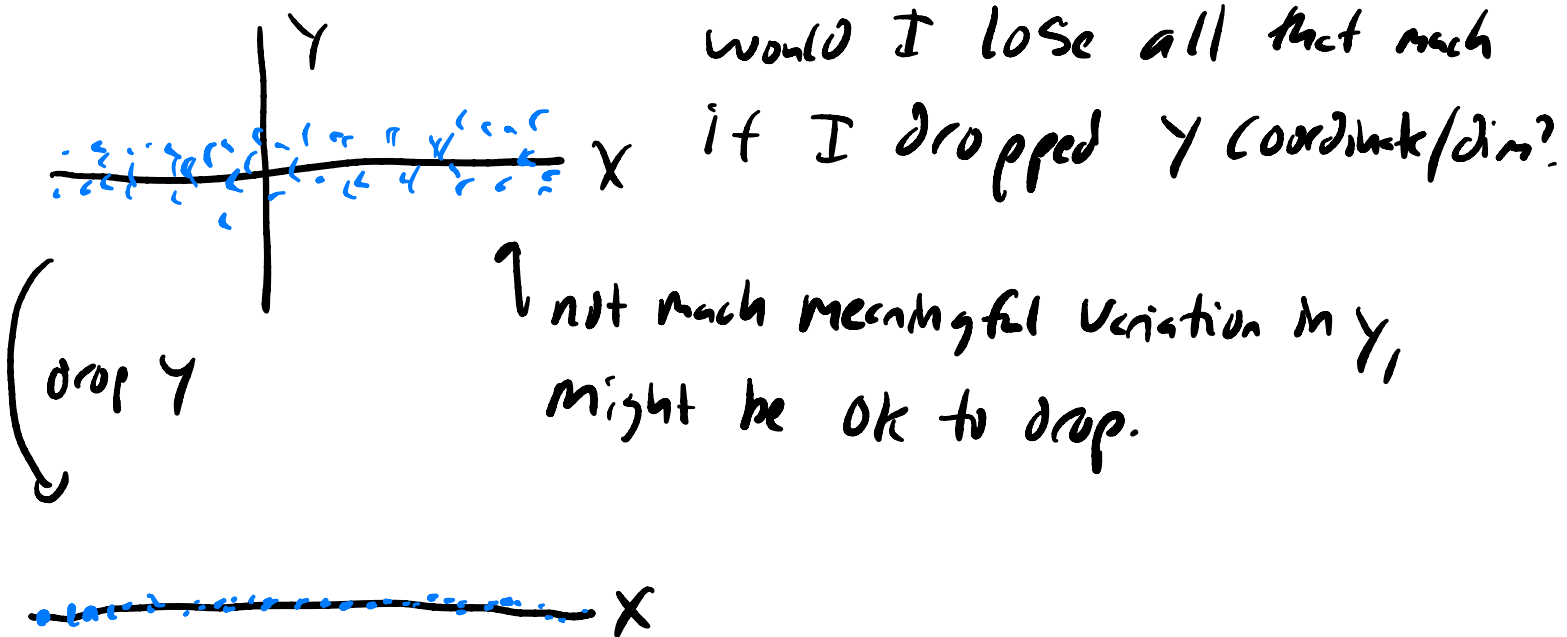 Y
would I lose all that much
X
if I dropped Y coordinate/dim?
not much meaningful variation in Y,
drop Y
might be ok to drop.
X